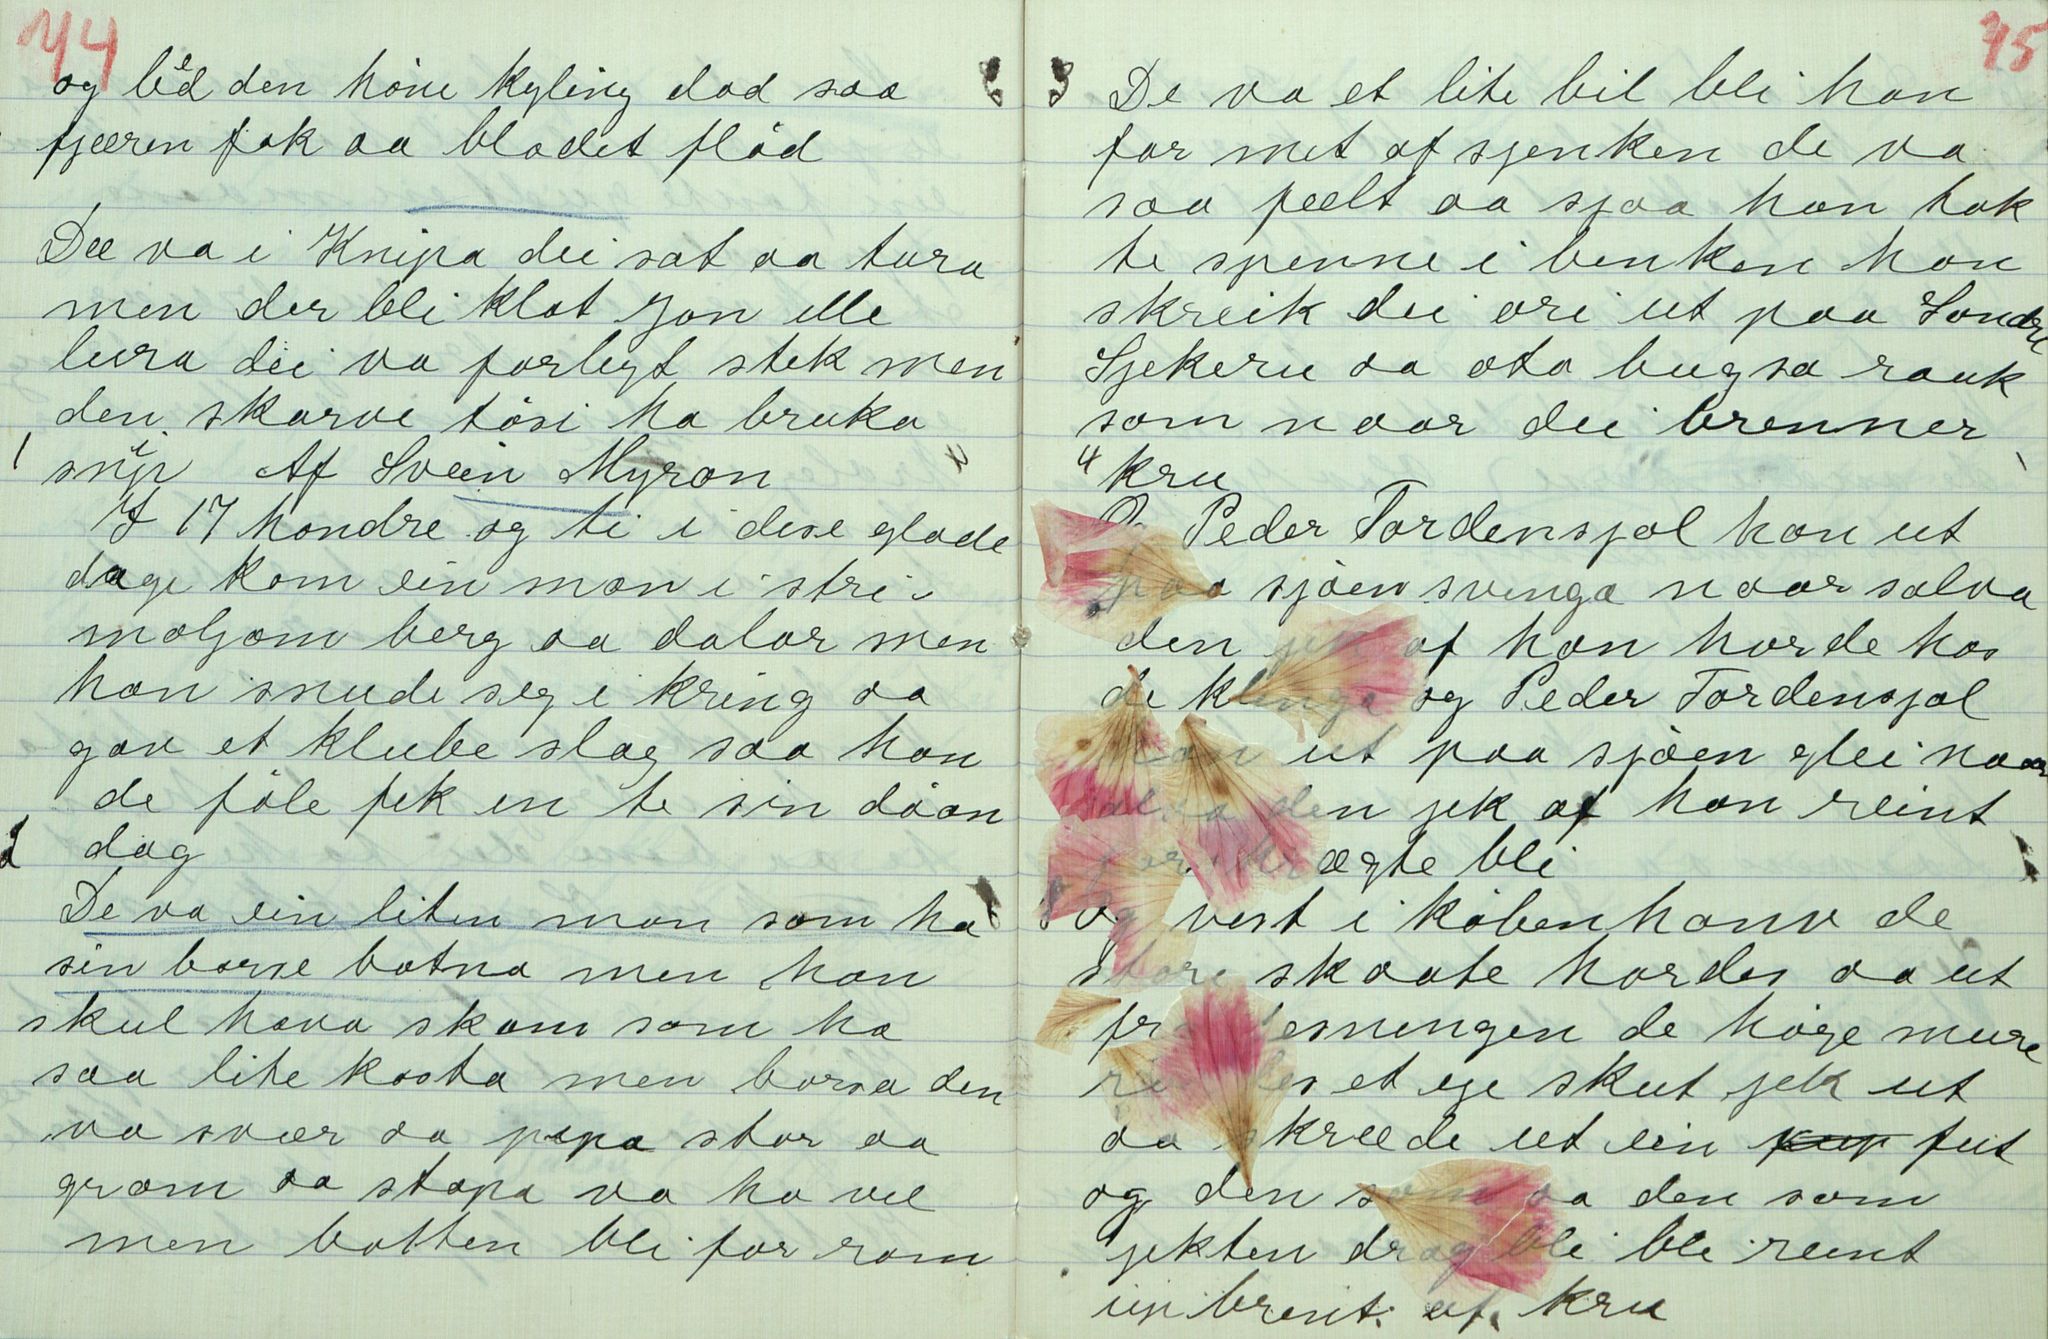 44
og led den höne kyling dod saa
fjæren fok aa blodet flöd
Dee va i Knipa dei sat aa tura
men der bli klat Jon elle
lura dei va forligt stek men
den skarve tösi ha bruka
snip Af Svein Myran
I 17 hondre og ti i dese glade
dage kom ein man i stri
moljom berg aa dalar men
han snude seg i kring aa
gav et klube slag saa han
de föle fek en te sin döan
dag
De va ein liten man som ha
sin borse botna men han
skul hava skam som ha
saa lite kosta men borsa den
va svær aa pipa stor aa
gram aa stapa va ho vel
men botten bli for ram
45
De va et lite bil bli han
for met af sjenken de va
saa feelt aa sjaa han tok
te spenne i benken han
skreik dei ori ut paa Sondre
Sjekeru aa ota bugsa rauk
som naar dei brenner
kru
Peder Tordensjol han ut
paa sjöen svinga naar salva
den jek af han horde hos
de klinga og Peder Tordensjol
han ut paa sjöen glei naar
salva den jek af han reint
ægte bli
og vest i köbenhanv de
store skaate hordes aa ut
fra esningen de höge mure
et eje skut jek ut
aa skreede ut ein fut
og den som aa den som
jekten drog bli bli reint
up brent af kru